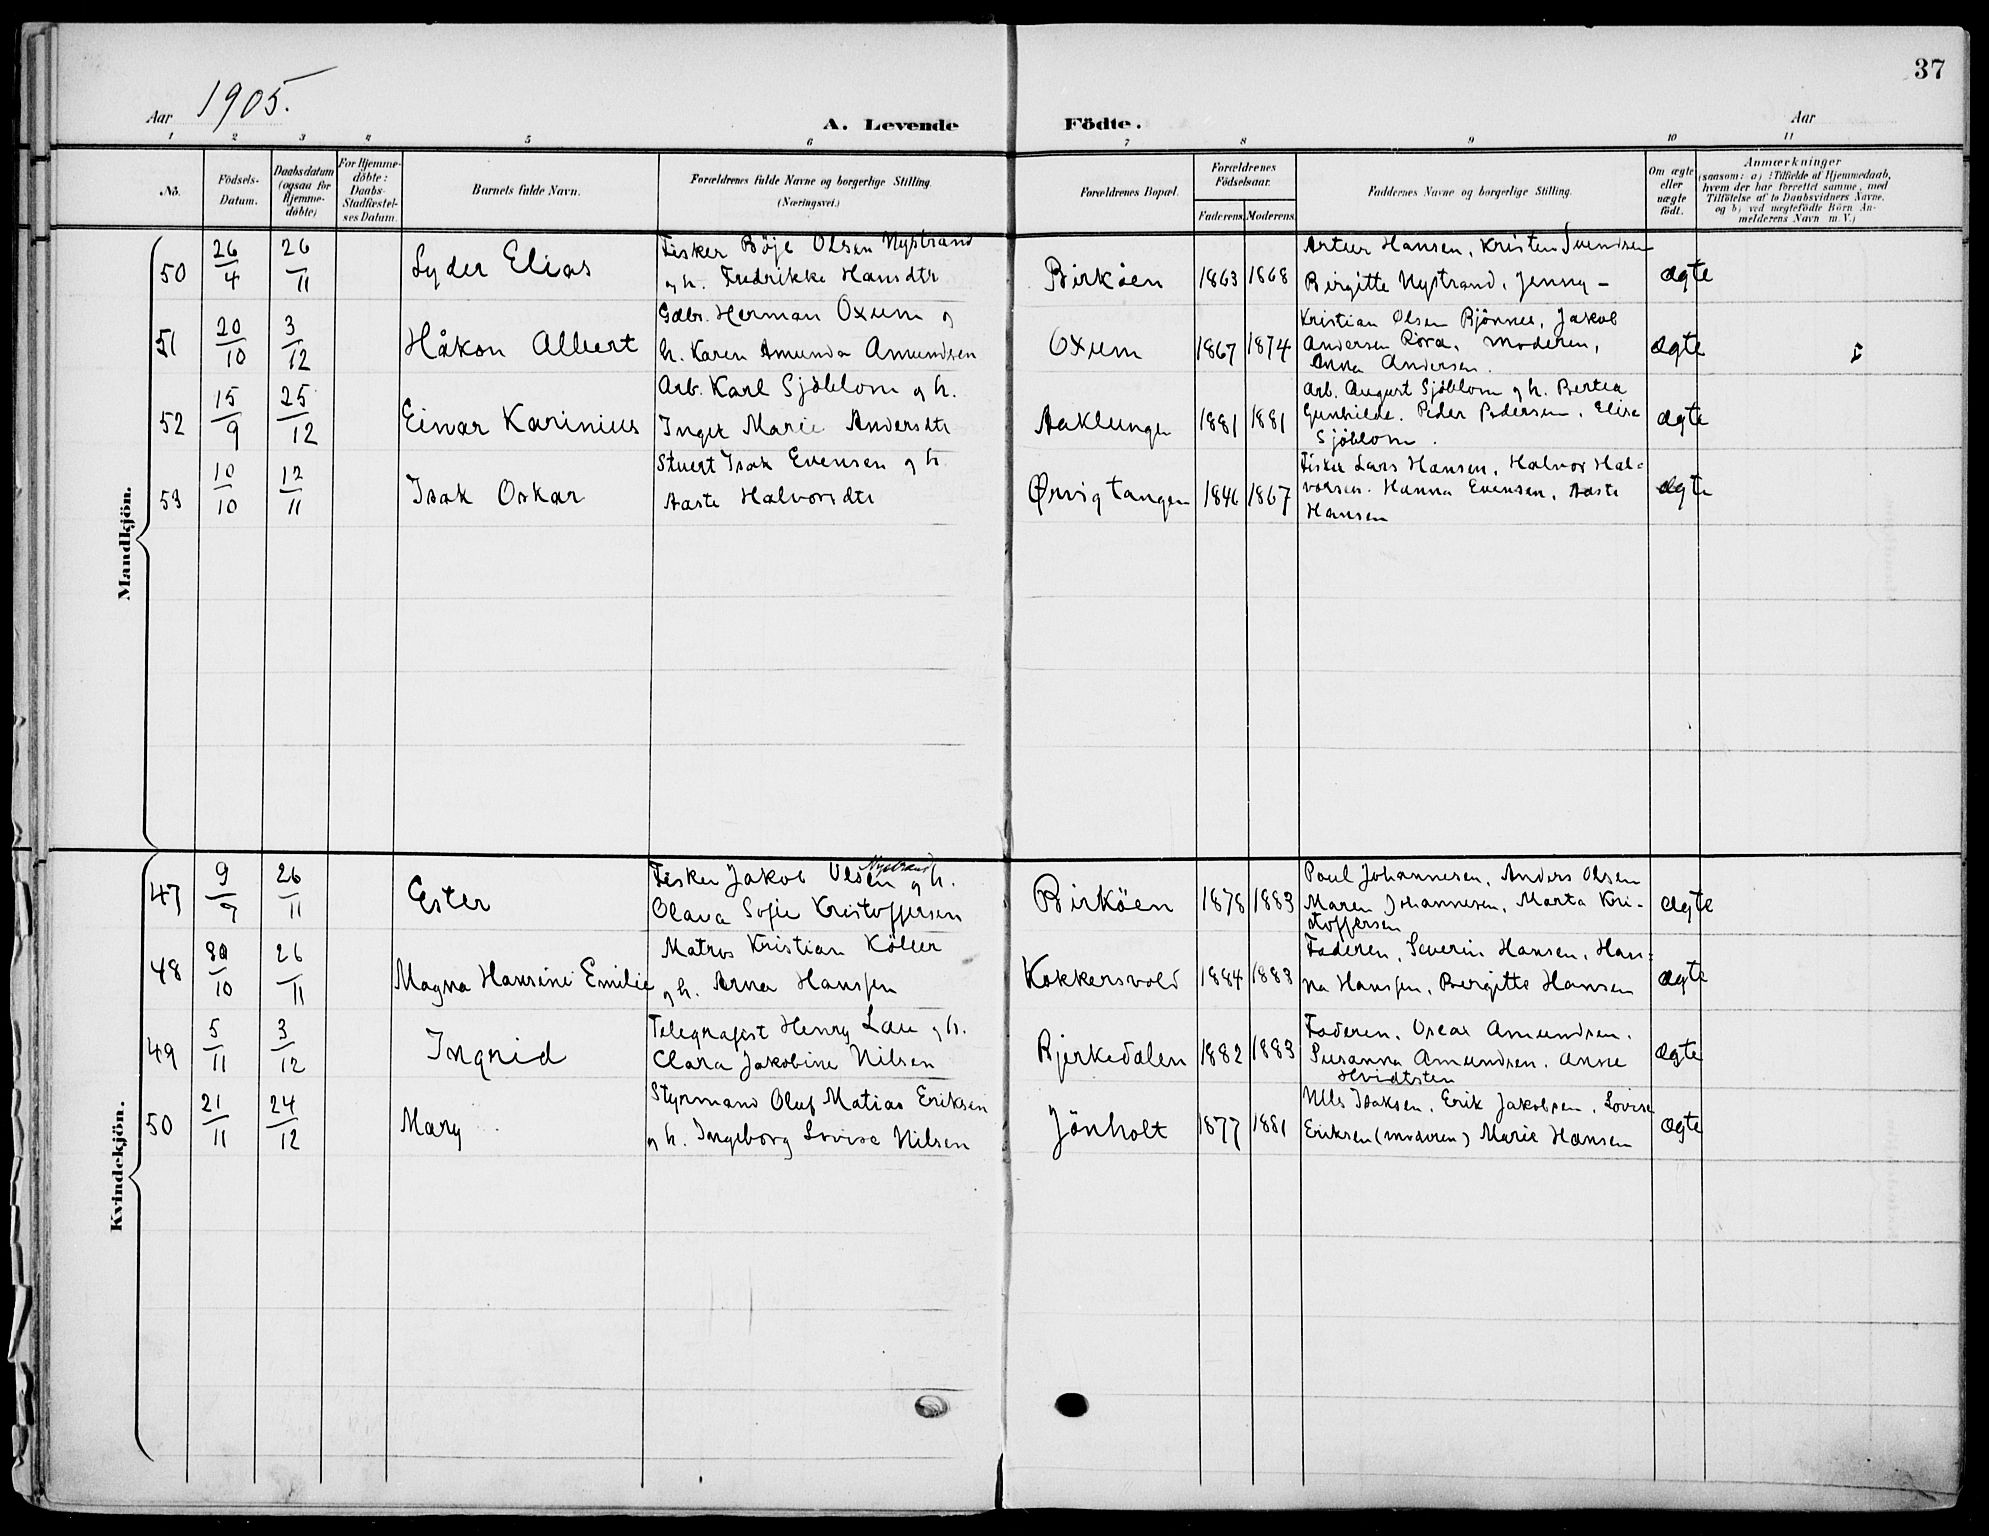 37
Aar 1905.
A. Levende Födte.
Aar
1 2 3 4 5 6 7 8 9 10 11
No.
Födsels-Datum.
Daabsdatum (ogsaa for Hjemme-döbte)
For Hjemme-döbte: Daabs-Stadfæstel-ses Datum.
Barnets fulde Navn.
Forældrenes fulde Navne og borgerlige Stilling.
(Næringsvei.)
Forældrenes Bopæl.
Forældrenes Födselsaar.
Faderens. Moderens.
Faddernes Navne og borgerlige Stilling.
Om ægte eller uægte födt.
Anmærkninger
(saasom: a) i Tilfælde af Hjemmedaab,
hvem der har forrettet samme, med
Tilföielse af to Daabsvidners Navne.
og b) ved uægtefödte Börn An-
melderens Navn m. V.)
Mandkjön.
50 26/4 26/11 Lyder Elias
Fisker Böje Olsen Nystrand
og h. Fredrikke Hansdtr
Birköen 1863 1868
Artur Hansen, Kristen Svendsen
Birgitte Nystrand, Jenny —
ægte
51 20/10 3/12 Håkon Albert
Gdbr. Herman Oxum og
h. Karen Amunda Amundsen
Oxum 1867 1874
Kristian Olsen Bjönnes, Jakob
Andersen Röra, moderen,
Anna Andersen.
ægte
52 15/9 25/12 Einar Karinius
Arb. Karl Sjöblom og h.
Inger Marie Andersdtr
Aaklungen 1881 1881
Arb. August Sjöblom og h. Bertea
Gunhilde. Peder Pedersen, Elise
Sjöblom.
ægte
53 10/10 12/11 Isak Oskar
Stuert Isak Evensen og h.
Aaste Halvorsdtr
Ørvigtangen 1846 1867
Fisker Lars Hansen, Halvor Hal-
vorsen. Hanna Evensen, Aaste
Hansen
ægte
Kvindekjön.
47 9/9 26/11 Ester
Fisker Jakob Olsen Nystrand og h.
Olava Sofie Kristoffersen
Birköen 1878 1883
Poul Johannesen, Anders Olsen
Maren Johannesen, Marta Kri-
stoffersen
ægte
48 /10 26/11 Magna Hansine Emilie
Matros Kristian Köller
og h. Anna Hanssen
Kokkersvold 1884 1883
Faderen, Severin Hansen, Han-
na Hanssen, Bergitte Hansen
ægte
49 5/11 3/12 Ingrid
Telegrafist Henry Lau og h.
Clara Jakobine Nilsen
Bjerkedalen 1882 1883
Faderen, Oscar Amundsen.
Susanna Amundsen. Anne
Hvidtsten
ægte
50 21/11 24/12 Mary
Styrmand Oluf Matias Eriksen
og h. Ingeborg Lovise Nilsen
Jönholt 1877 1881
Nils Isaksen, Erik Jakobsen, Lovise
Eriksen (moderen) Marie Hansen
ægte